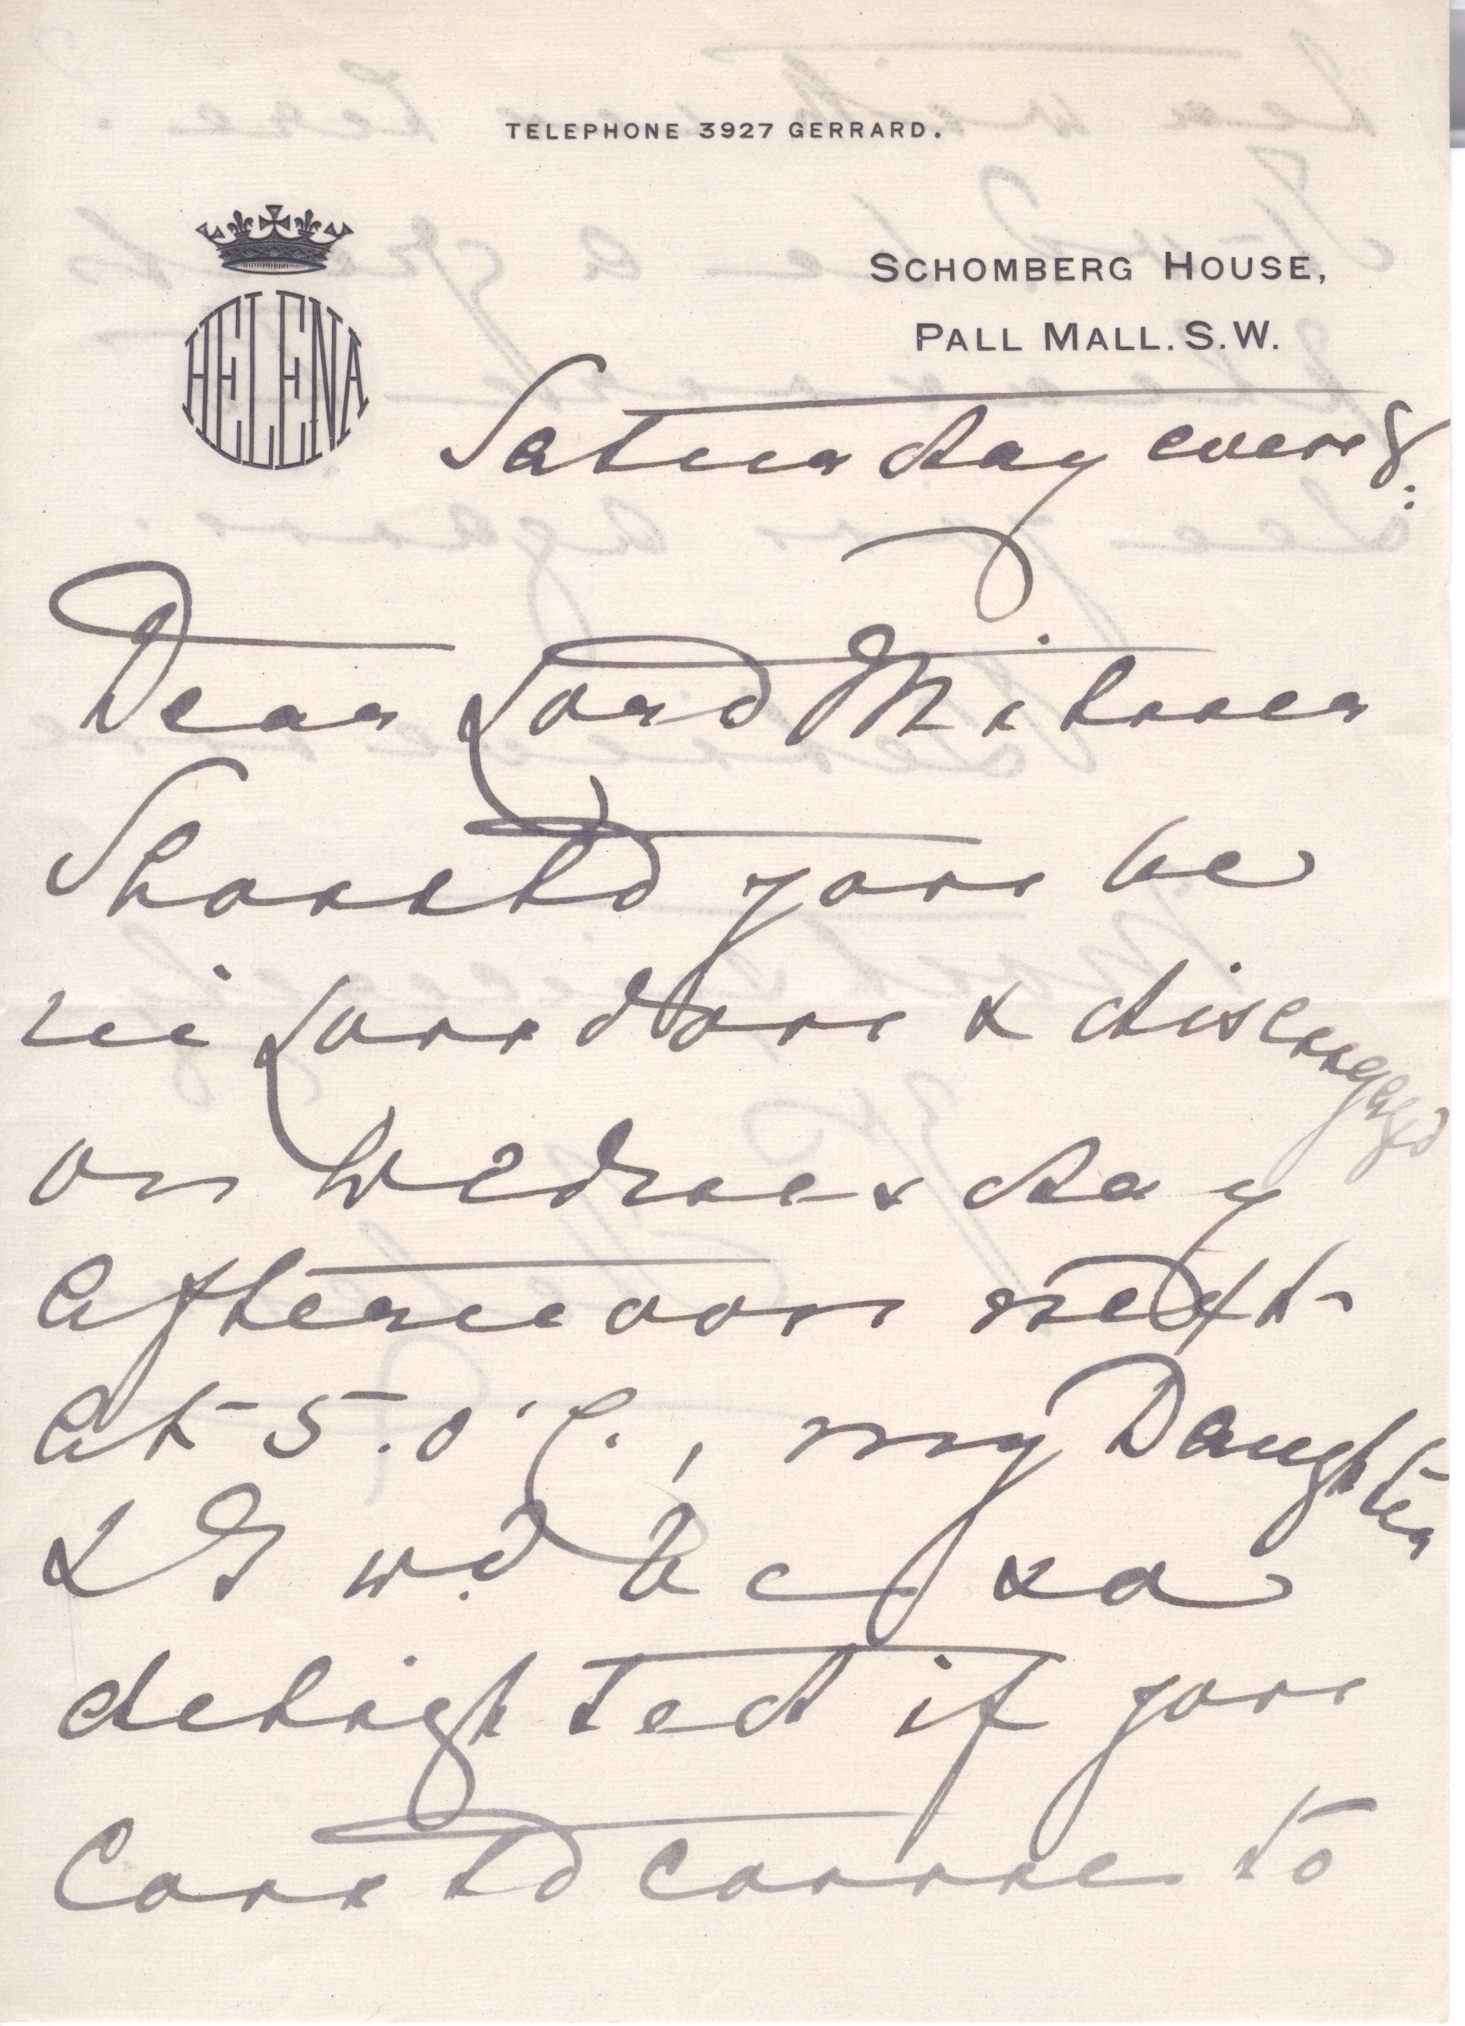 TELEPHONE 3927 GERRARD.
HELENA
SCHOMBERG HOUSE,
PALL MALL. S.W.
Saturday eveng:
Dear Lord Milner
Should you be
in London & disengaged
on Wednesday
afternoon next
at 5. o'C., my Daughter
& I wd. be so
delighted if you
could come to